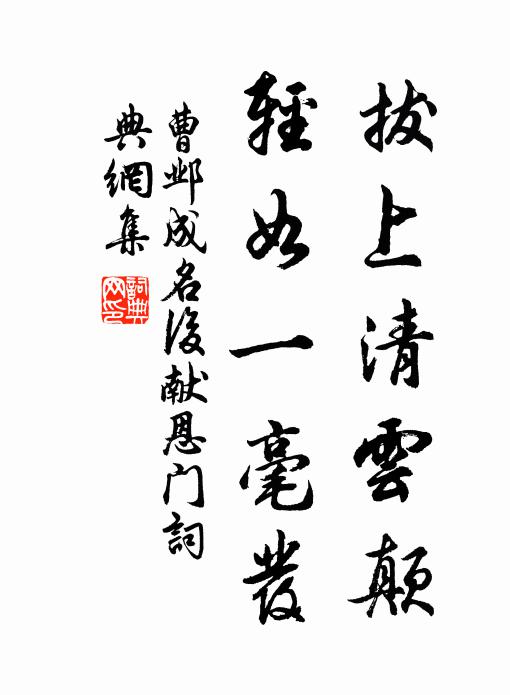 拔上清雲顛
輕如一毫發
曹邺成名後献恩门詞
典網集
詞典
网印